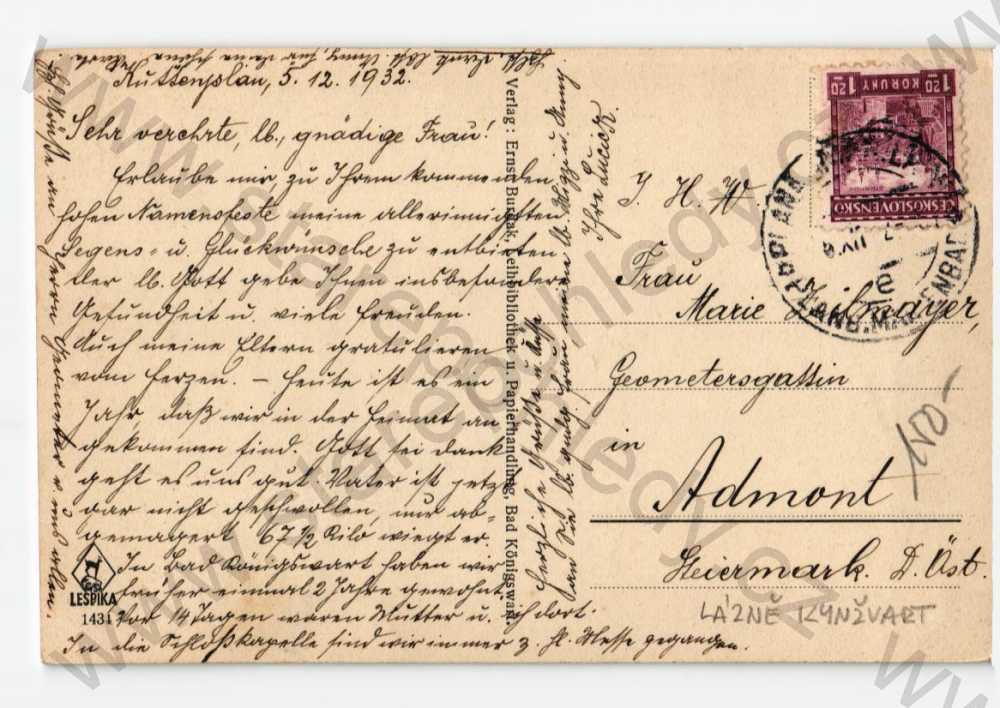 Kuttenplan, 5. 12. 1932.
Sehr verehrte, lb., gnädige Frau!
Erlaube mir, zu Ihrem kommenden
hohen Namensfeste meine allerinnigsten
Segens- u. Glückwünsche zu entbieten
der lb. Gott gebe Ihnen insbesondere
Gesundheit u. viele Freuden.
Auch meine Eltern gratulieren
vom Herzen. – Heute ist es ein
Jahr, daß wir in der Heimat an-
gekommen sind. Gott sei dank
geht es uns gut. Vater ist jetzt
gar nicht geschwollen, nur ab-
gemagert 67 1/2 Kilo wiegt er.
In Bad Königswart haben wir
früher einmal 2 Jahre gewohnt.
Vor 14 Tagen waren Mutter u. ich dort.
In die Schloßkapelle sind wir immer z. hl. Messe gegangen.
Herzliche Grüße u. Küsse
Ihre Luise K.
Verlag: Ernst Buziak, Leihbibliothek u. Papierhandlung, Bad Königswart.
LESPIKA
1434
I. H. W.
Frau
Marie Zeilmayer,
Geometersgattin
in
Admont
Steiermark. D. Öst.
LÁZNĚ KYNŽVART
150-
1·20 KORUNY 1·20
ČESKOSLOVENSKO